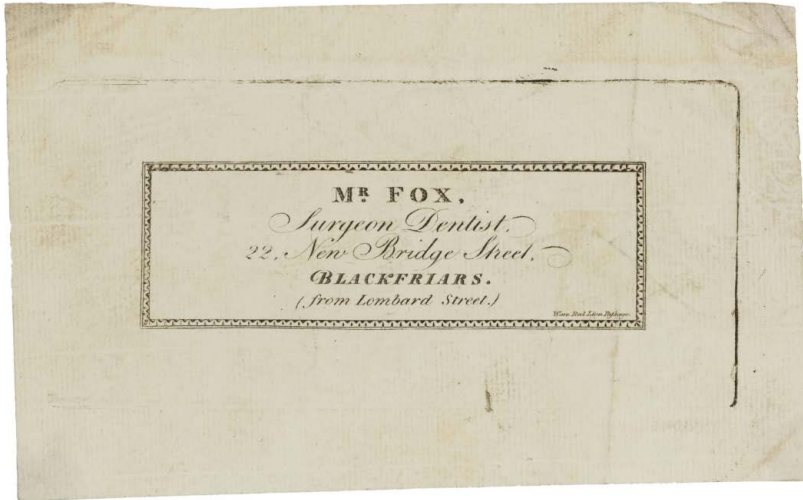 Mᴿ. FOX,
Surgeon Dentist.
22, New Bridge Street.
BLACKFRIARS.
(from Lombard Street.)
Red Lion Passage